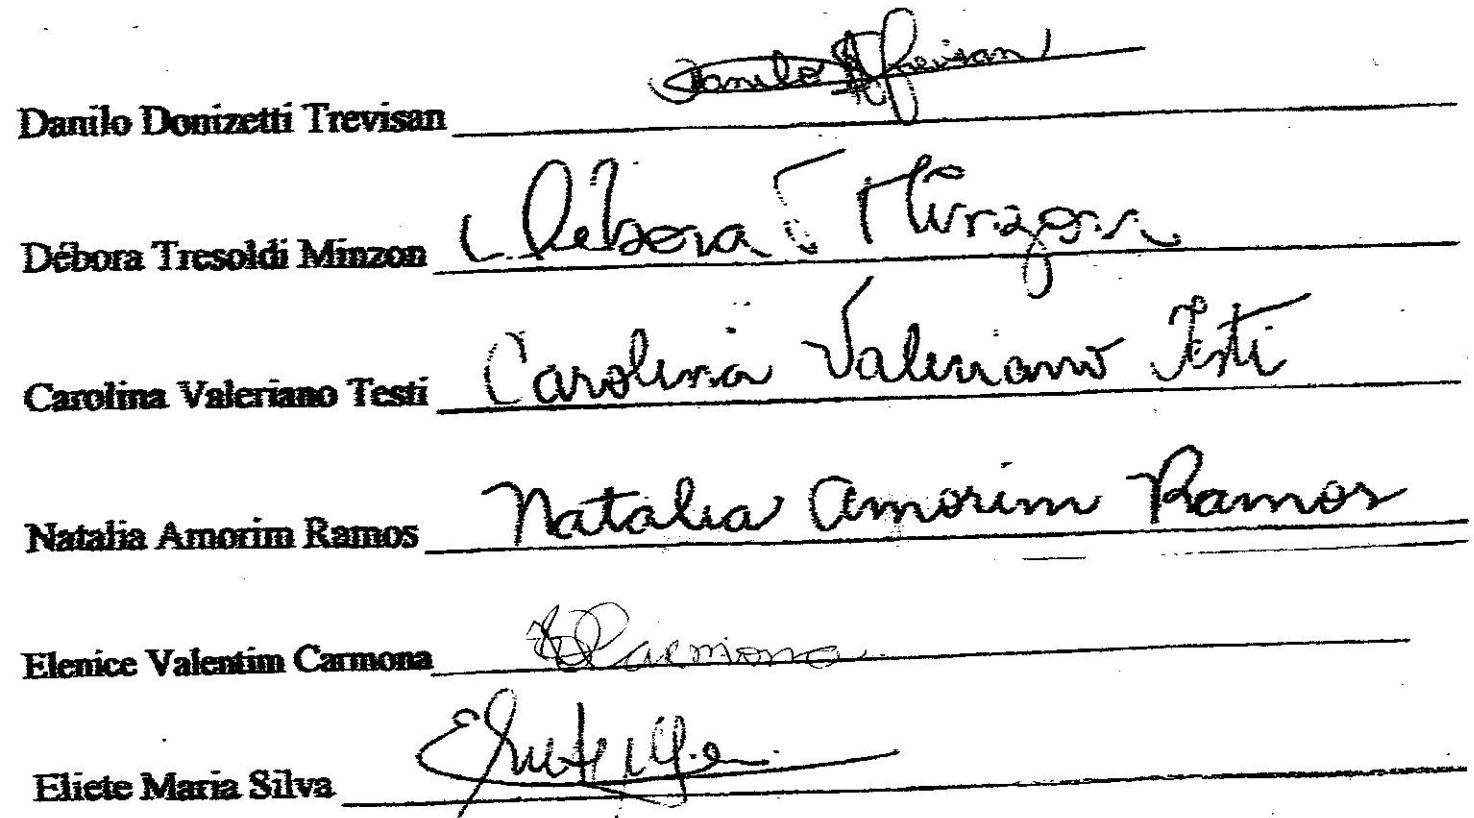 Danilo Donizetti Trevisan Danilo Trevisan
Débora Tresoldi Minzon Débora T Minzon
Carolina Valeriano Testi Carolina Valeriano Testi
Natalia Amorim Ramos Natalia Amorim Ramos
Elenice Valentim Carmona Carmona
Eliete Maria Silva